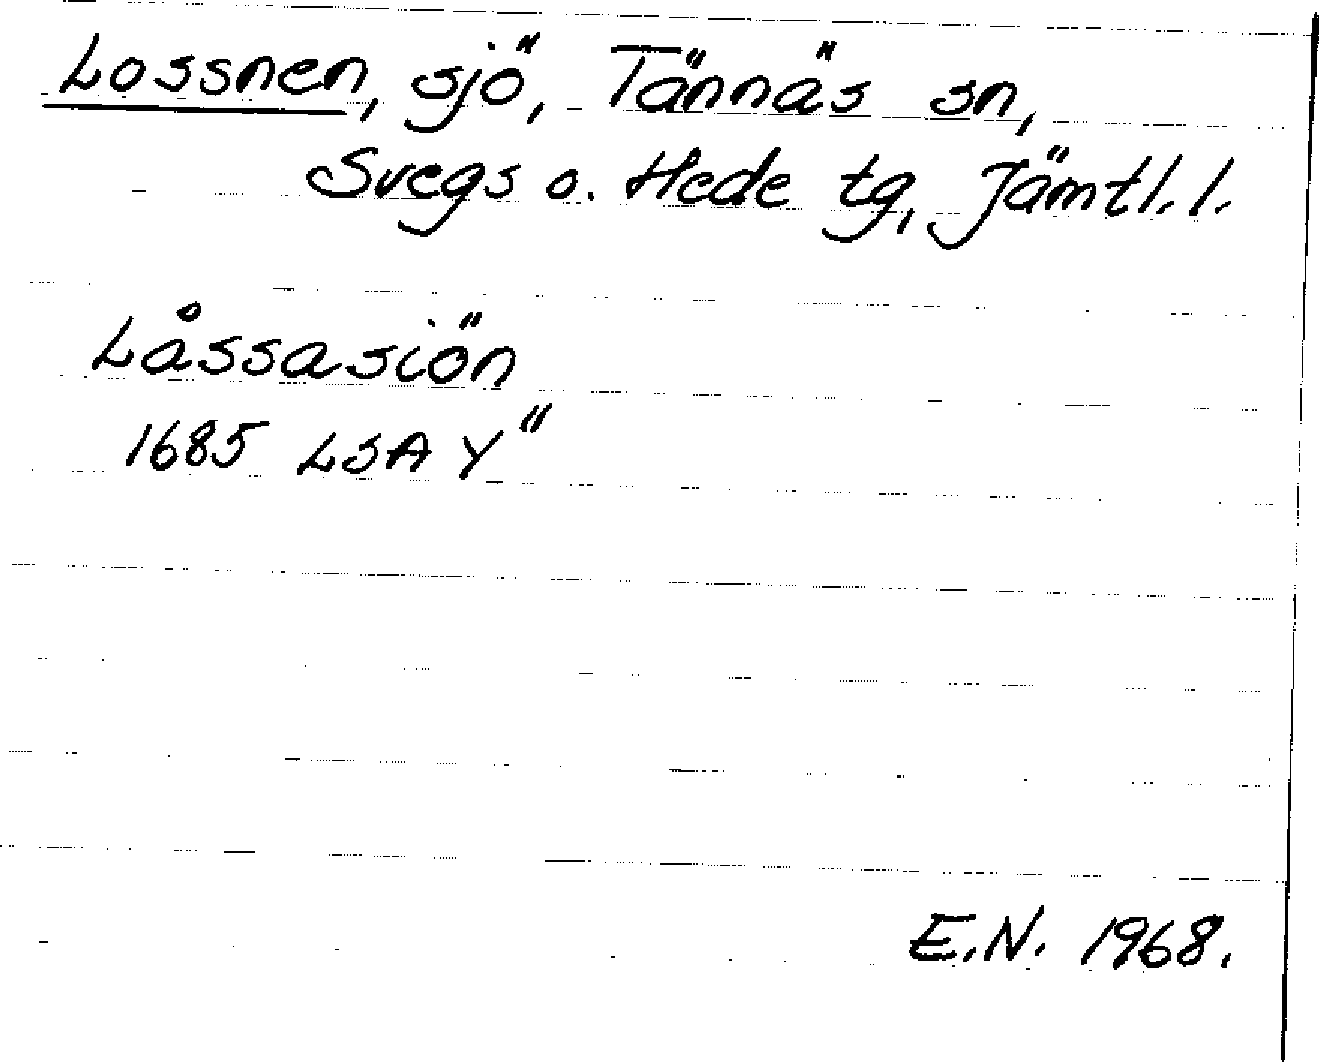 Lossnen, sjö, Tännäs sn,
Svegs o. Hede tg, Jämtl. l.
Låssasiön
1685 LSA Y"
E.N. 1968.